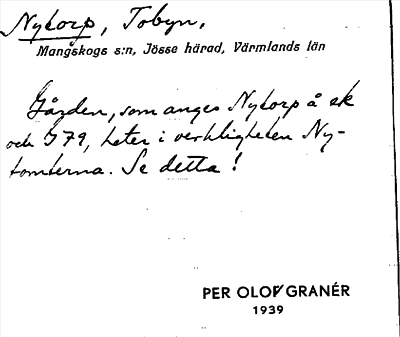 Nytorp, Tobyn,
Mangskogs s:n, Jösse härad, Värmlands län
Gården, som anges Nytorp å ek
och J 79, heter i verkligheten Ny-
tomterna. Se detta!
PER OLOF GRANÉR
1939